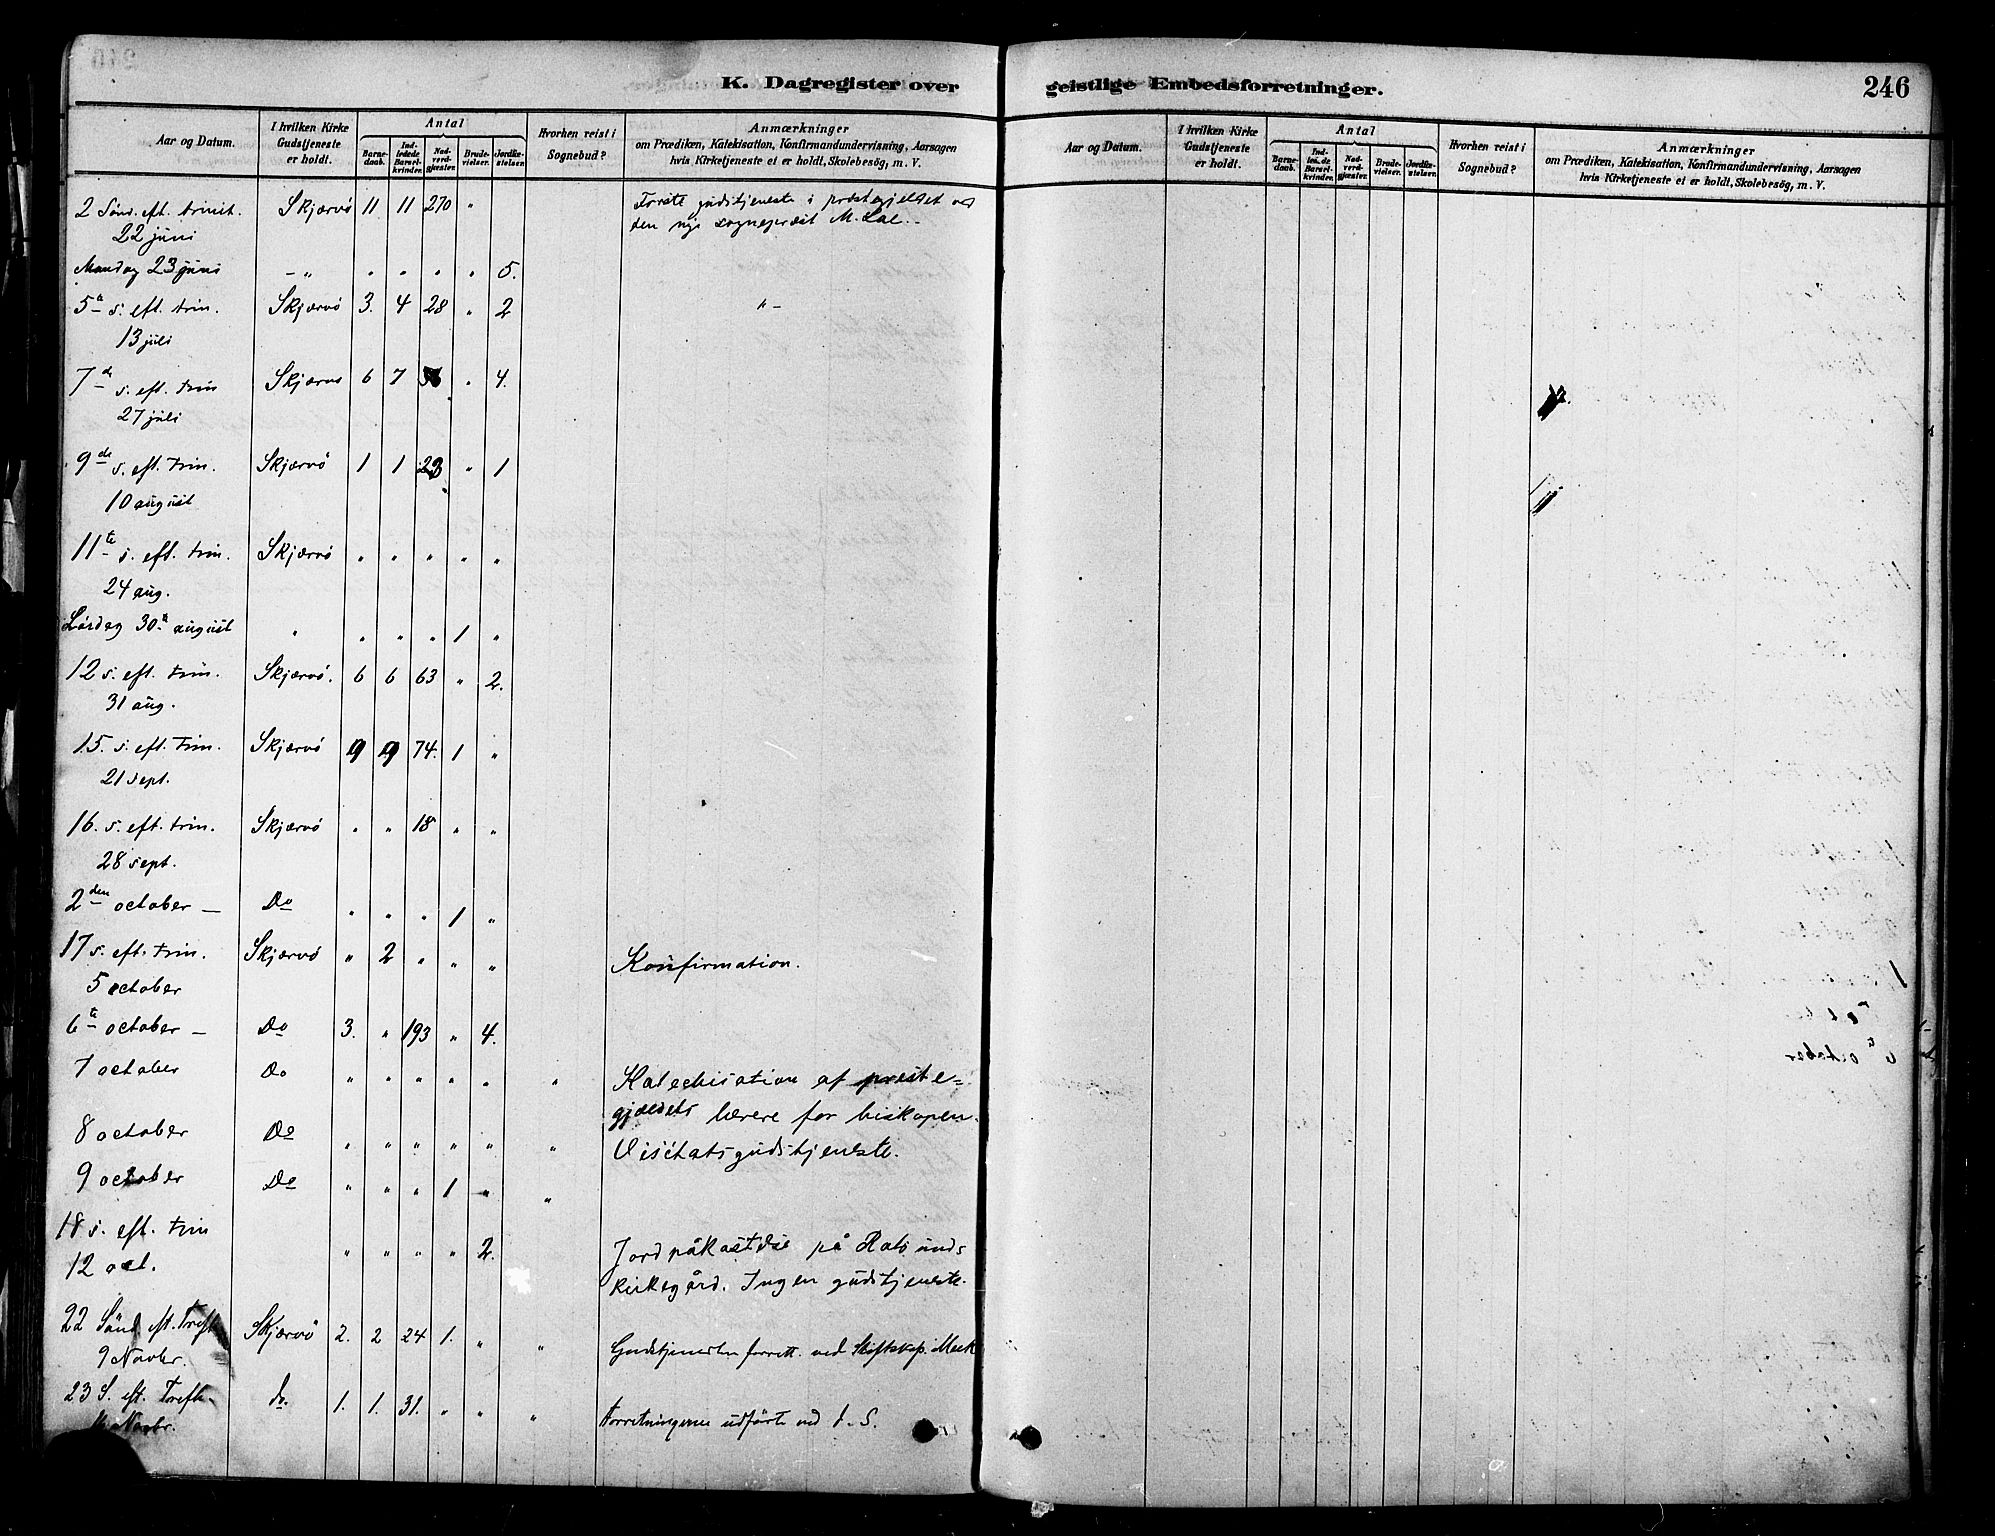 K. Dagregister over geistlige Embedsforretninger. 246
Aar og Datum. I hvilken Kirke Gudstjeneste er holdt. Antal Barnedaab. Indledede Barselkvinder. Nadverdgjæster. Brudevielser. Jordfæstelser. Hvorhen reist i Sognebud? Anmærkninger om Prædiken, Katekisation, Konfirmandundervisning, Aarsagen hvis Kirketjeneste et er holdt, Skolebesög, m. V.
2 Sönd. eft. trinit. Skjærvö 11 11 270 " Förste gudstjeneste i præstegjeldet ved
22 juni den nye sognepræst M. Lae.
Mandag 23 juni – " " " " " 5.
5te s. eft. trin. Skjærvö 3. 4 28 " 2 " –
13 juli
7de s. eft. trin Skjærvö 6 7 " 4.
27 juli
9de s. eft. trin. Skjærvö 1 1 23 " 1
10 august
11te s. eft. trin. Skjærvö " " " " "
24 aug.
Lördag 30te august " " " " 1 "
12 s. eft. trin. Skjærvö. 6 6 63 " 2.
31 aug.
15. s. eft. trin. Skjærvö 9 9 74. 1 "
21 sept.
16. s. eft. trin. Skjærvö " " 18 " "
28 sept.
2den october – Do " " " 1 "
17 s. eft. trin. Skjærvö " 2 " " " Konfirmation.
5 october
6te october – Do 3. " 193 " 4.
7 october Do " " " " " " Katechisation af præste=
gjældets lærere for biskopen.
8 october Do " " " " " " Visitatsgudstjeneste.
9 october Do " " " 1 " "
18 s. eft. trin " " " " 2. Jordpåkastelse på Rotsunds
12 oct. kirkegård. Ingen gudstjeneste.
22 Sönd. eft. Trefh. Skjærvö 2. 2 24 1. " " Gudstjenesten forrett. ved Stiftskap. Mack
9 Novbr.
23 S. eft. Trefh. do. 1. 1. 31. " " " Forretningerne udförte ved d. S.
16 Novbr.
Aar og Datum. I hvilken Kirke Gudstjeneste er holdt. Antal Barnedaab. Indledede Barselkvinder. Nadverdgjæster. Brudevielser. Jordfæstelser. Hvorhen reist i Sognebud? Anmærkninger om Prædiken, Katekisation, Konfirmandundervisning, Aarsagen hvis Kirketjeneste et er holdt, Skolebesög, m. V.